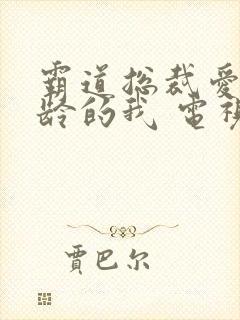 霸道总裁爱
龄的我 電視
賈巴尔